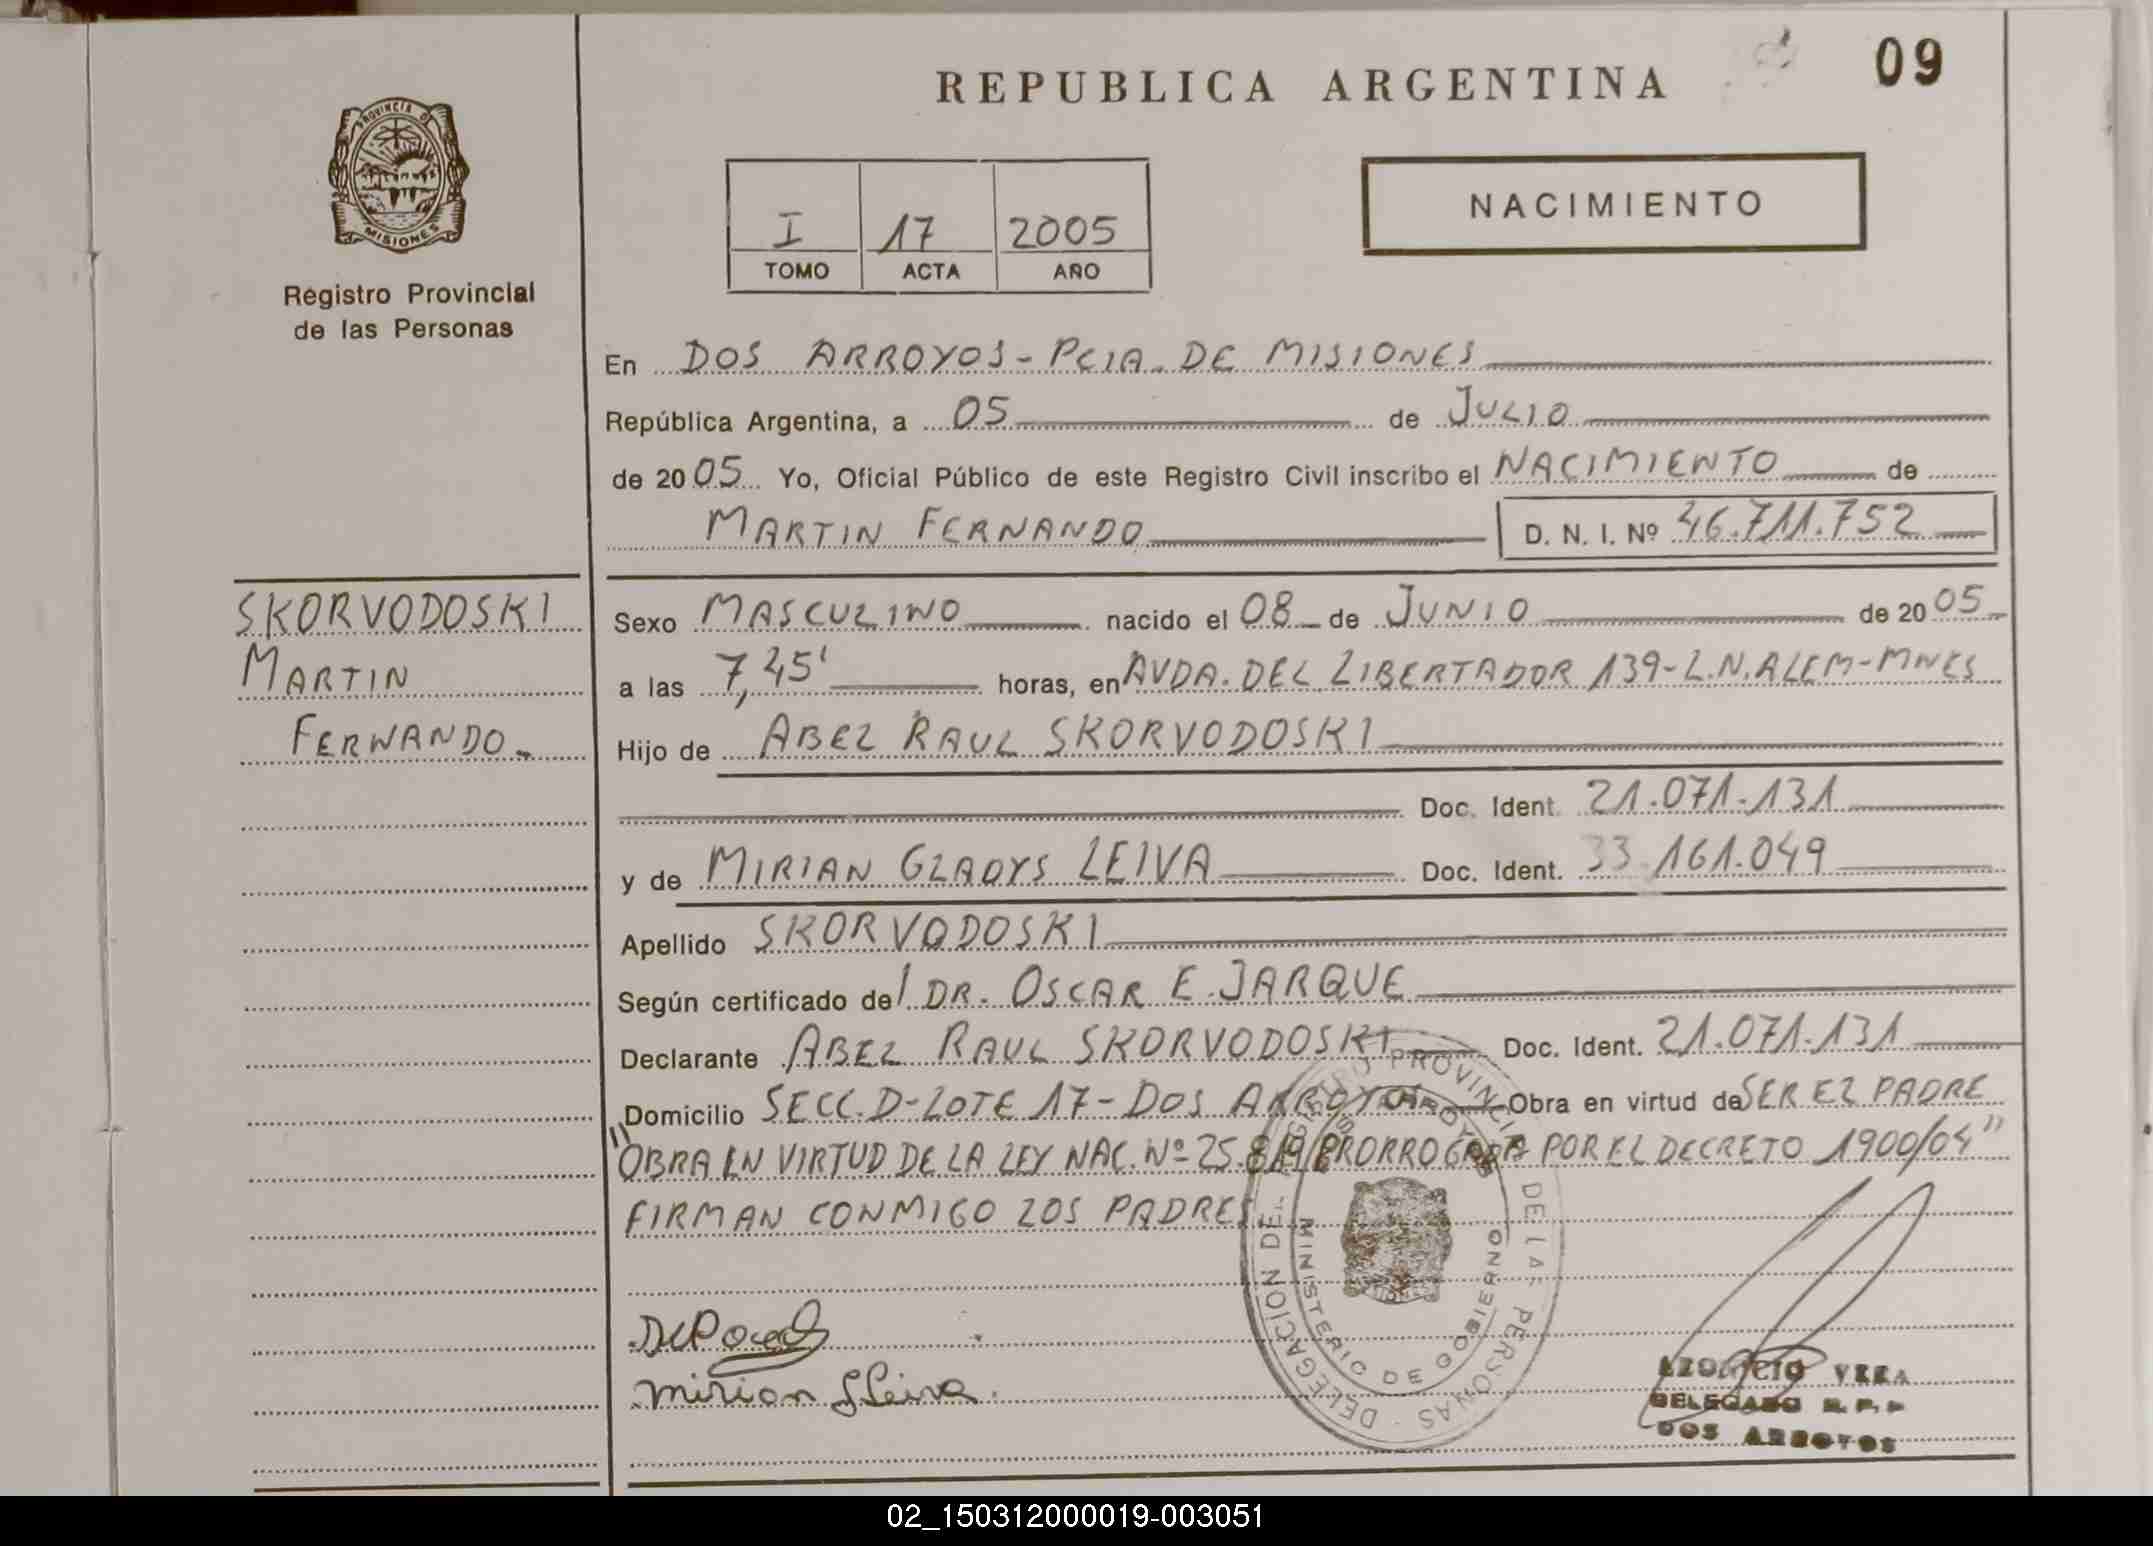 REPUBLICA ARGENTINA
09
PROVINCIA DE
MISIONES
Registro Provincial
de las Personas
I 17 2005
TOMO ACTA AÑO
NACIMIENTO
En DOS ARROYOS - PCIA. DE MISIONES
República Argentina, a 05 de JULIO
de 2005 Yo, Oficial Público de este Registro Civil inscribo el NACIMIENTO de
MARTIN FERNANDO D. N. I. Nº 46.711.752
SKORVODOSKI
MARTIN
FERNANDO.-
Sexo MASCULINO nacido el 08 de JUNIO de 2005
a las 7,45' horas, en AVDA. DEL LIBERTADOR 139-L.N.ALEM-MNES
Hijo de ABEL RAUL SKORVODOSKI
Doc. Ident. 21.071.131
y de MIRIAN GLADYS LEIVA Doc. Ident. 33.161.049
Apellido SKORVODOSKI
Según certificado del DR. OSCAR E. JARQUE
Declarante ABEL RAUL SKORVODOSKI Doc. Ident. 21.071.131
Domicilio SECC. D-LOTE 17-DOS ARROYOS Obra en virtud de SER EL PADRE
"OBRA EN VIRTUD DE LA LEY NAC. Nº 25.819 PRORROGADA POR EL DECRETO 1900/04"
FIRMAN CONMIGO LOS PADRES
DELEGACION DEL REGISTRO PROVINCIAL DE LAS PERSONAS
MINISTERIO DE GOBIERNO
DOS ARROYOS
Mirian G Leiva.
VERA
DELEGADO R. P. P
DOS ARROYOS
02_150312000019-003051